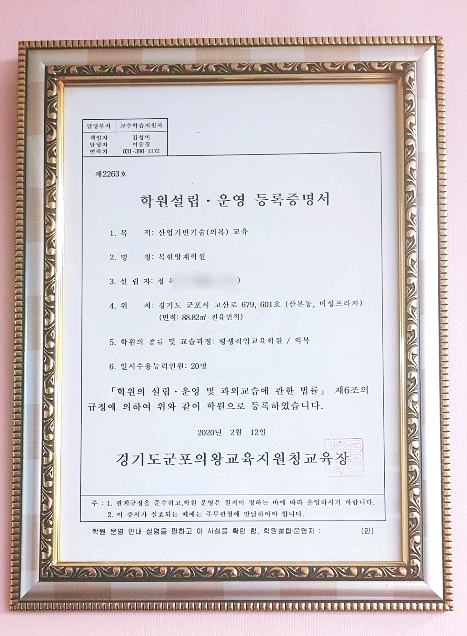 담당부서 교수학습지원과
책임자 김성미
담당자 이승경
연락처 031-390-1172
제2263호
학원설립·운영 등록증명서
1. 목 적: 산업기반기술(의복) 교육
2. 명 칭: 복원양재학원
3. 설 립 자: 정
4. 위 치: 경기도 군포시 고산로 679, 601호 (산본동, 미성프라자)
(면적: 88.82㎡-전유면적)
5. 학원의 종류 및 교습과정: 평생직업교육학원 / 의복
6. 일시수용능력인원: 20명
「학원의 설립·운영 및 과외교습에 관한 법률」 제6조의
규정에 의하여 위와 같이 학원으로 등록하였습니다.
2020년 2월 12일
경기도군포의왕교육지원청교육장
주 : 1. 관계규정을 준수하고,학원 운영은 원칙이 정하는 바에 따라 운영하시기 바랍니다.
2. 이 증서가 실효되는 때에는 주무관청에 반납하여야 합니다.
학원 운영 안내 설명을 필하고 이 사실을 확인 함. 학원설립·운영자 : (인)